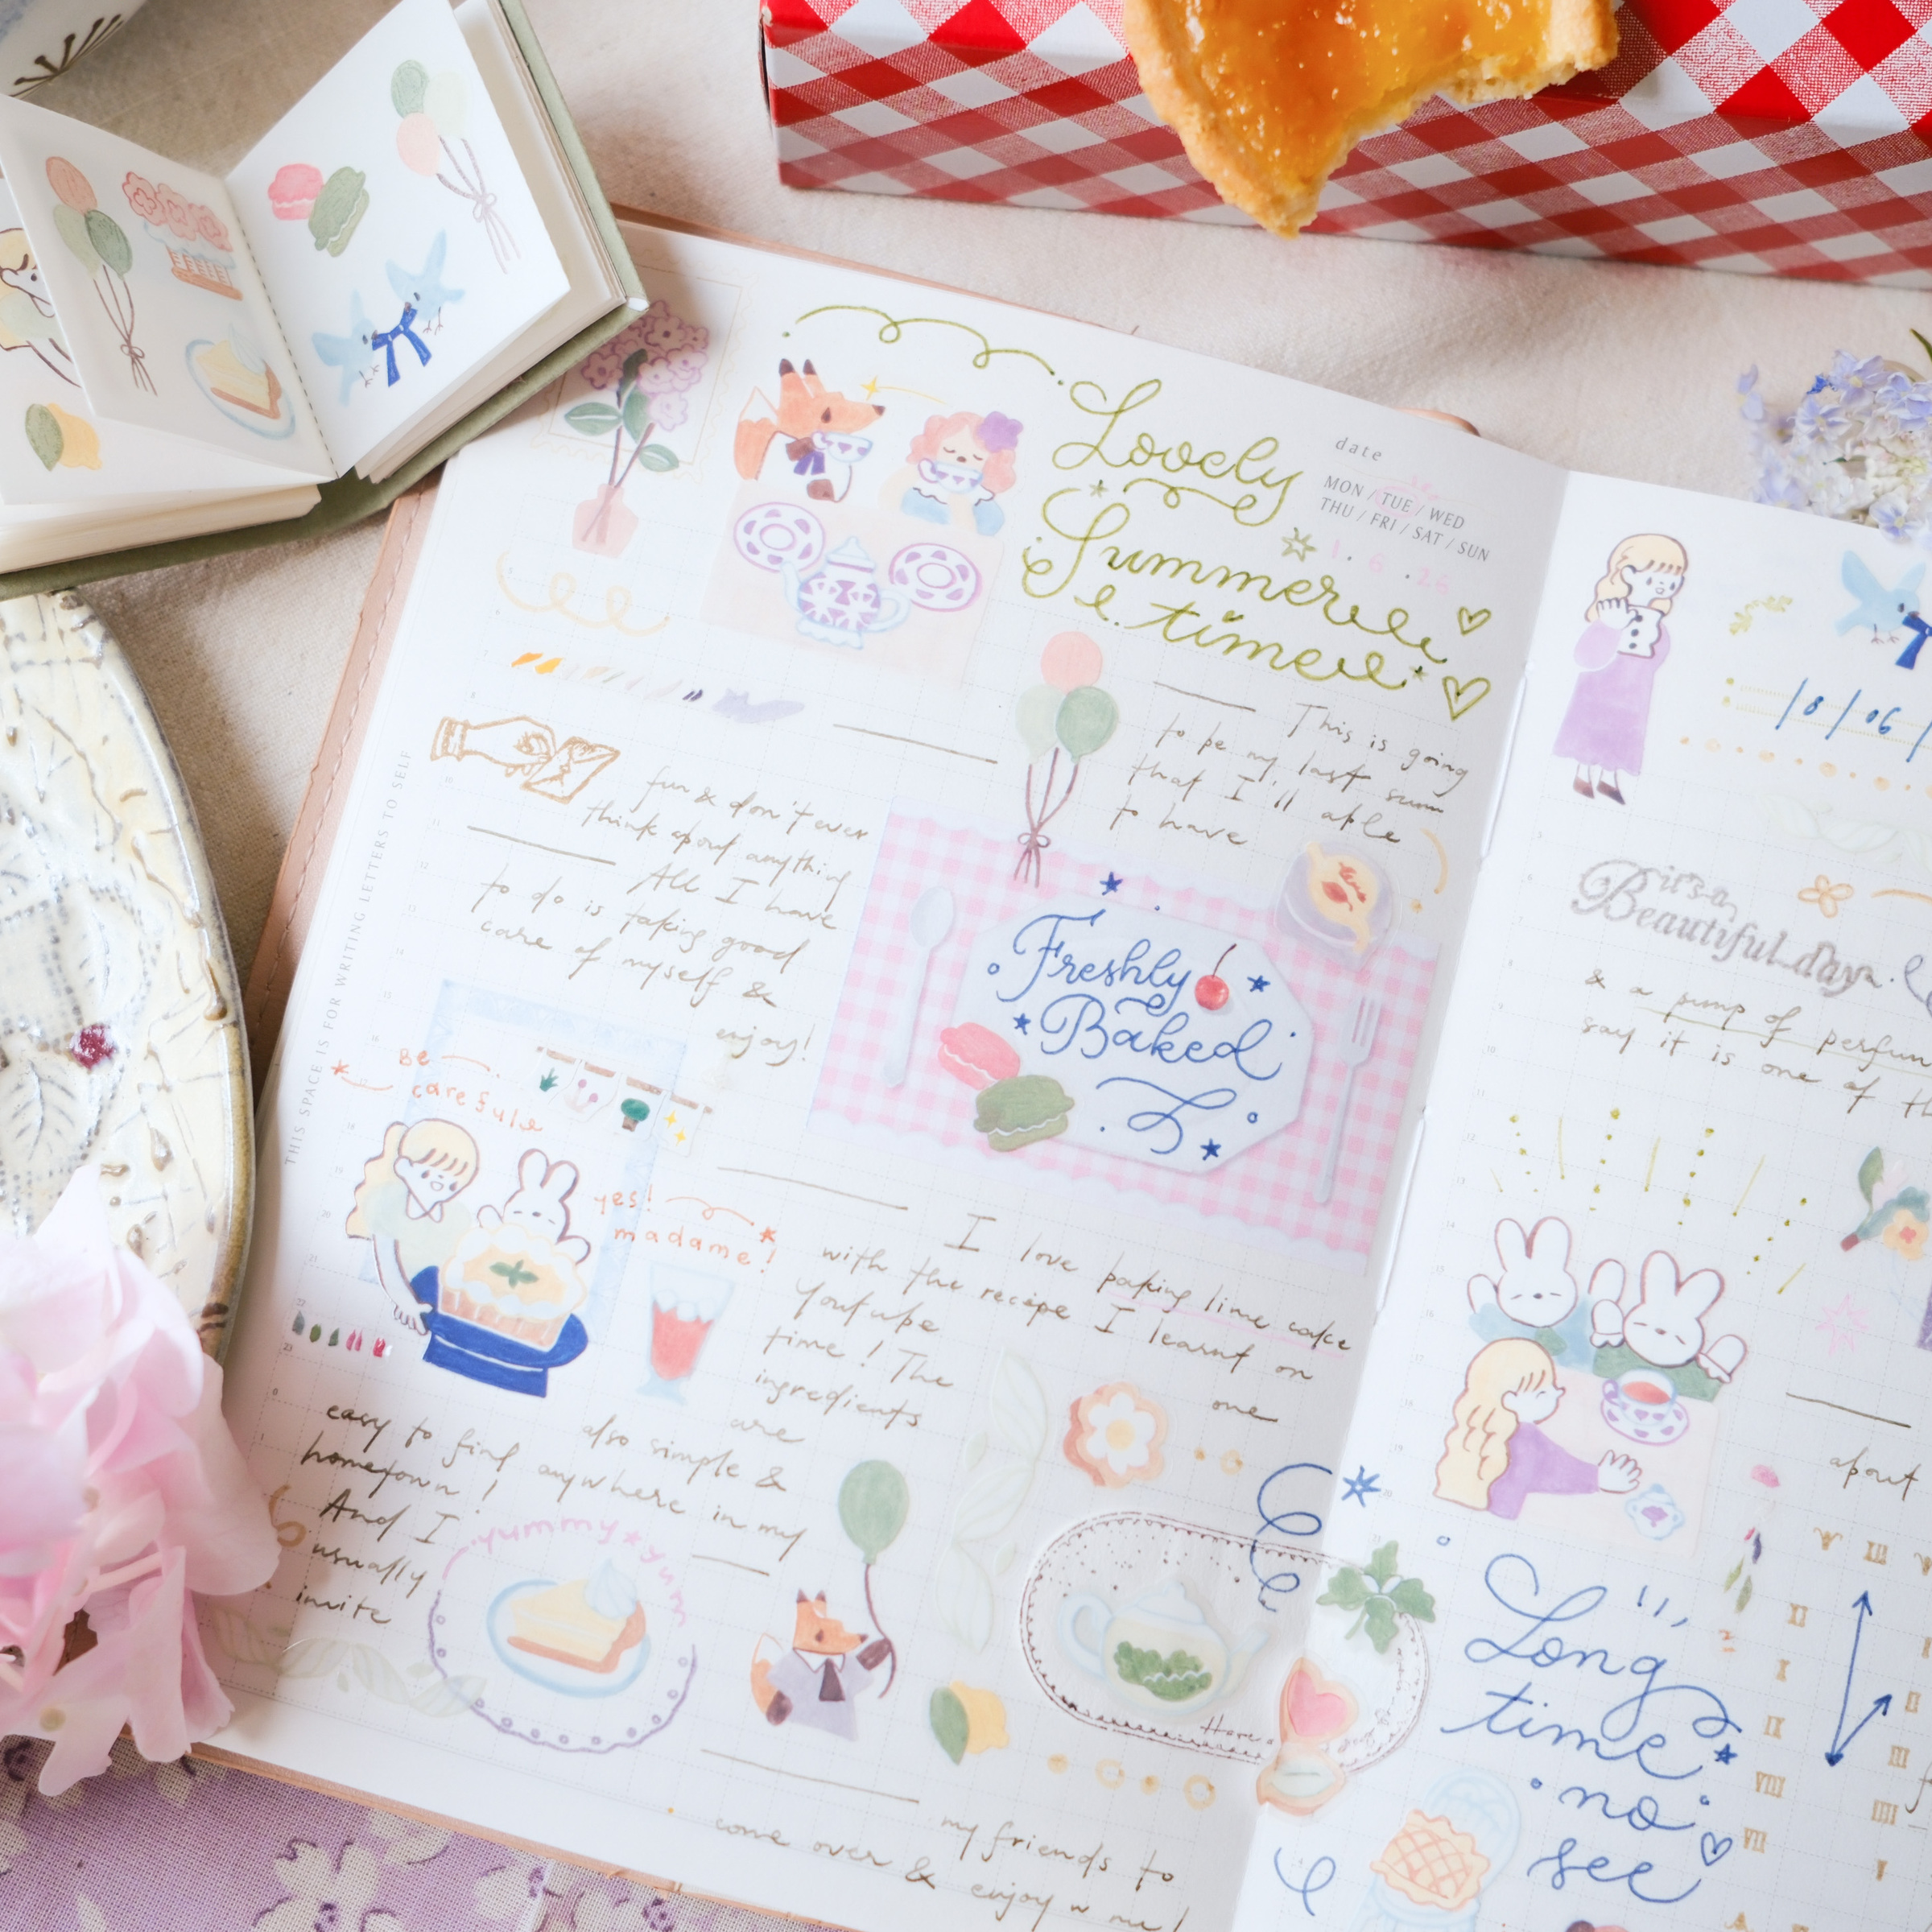 Lovely
Summer
time
date
MON / TUE / WED
THU / FRI / SAT / SUN
1. 6 .26
This is going
to be my last summ
that I'll able
to have
fun & don't ever
think about anything
All I have
to do is taking good
care of myself &
enjoy!
THIS SPACE IS FOR WRITING LETTERS TO SELF
Freshly
Baked
Be
carefule
yes!
madame!
I love baking lime cake
with the recipe I learnt on
Youtube one
time! The
ingredients
are
also simple &
easy to find anywhere in my
hometown!
And I
usually
invite
yummy yum
my friends to
come over & enjoy w me!
10/06/
it's a
Beautiful day
& a pump of perfum
say it is one of th
about
Long
time
no
see